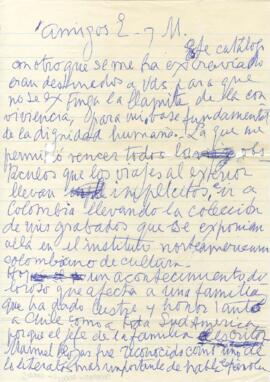 Amigos E. y M.
Este catálogo
con otro que se me ha extraviado
eran destinados a Vds. para que
no se extinga la llamita de la con
vivencia, para mi, base fundamental
de la dignidad humana. La que me
permitió vencer todos los obs
táculos que los viajes al exterior
llevan implícitos, ir a
Colombia llevando la colección
de mis grabados que se exponían
allá en el instituto norteamericano
colombiano de cultura.
un acontecimiento do
loroso que afecta a una familia
que ha dado lustre y honor tanto
a Chile como a toda Sud América
porque el jefe de la familia escritor
Manuel Rojas fue reconocido como uno de
los literatos más importantes de habla española